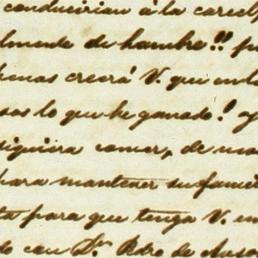 conducirian á la carcel,
lmente de hambre!! p
penas creerá V. que en l
sos lo que he ganado! y
siquiera comer, de mo
para mantener su fami
ta para que tenga V. en
do con Dn. Pedro de Anso